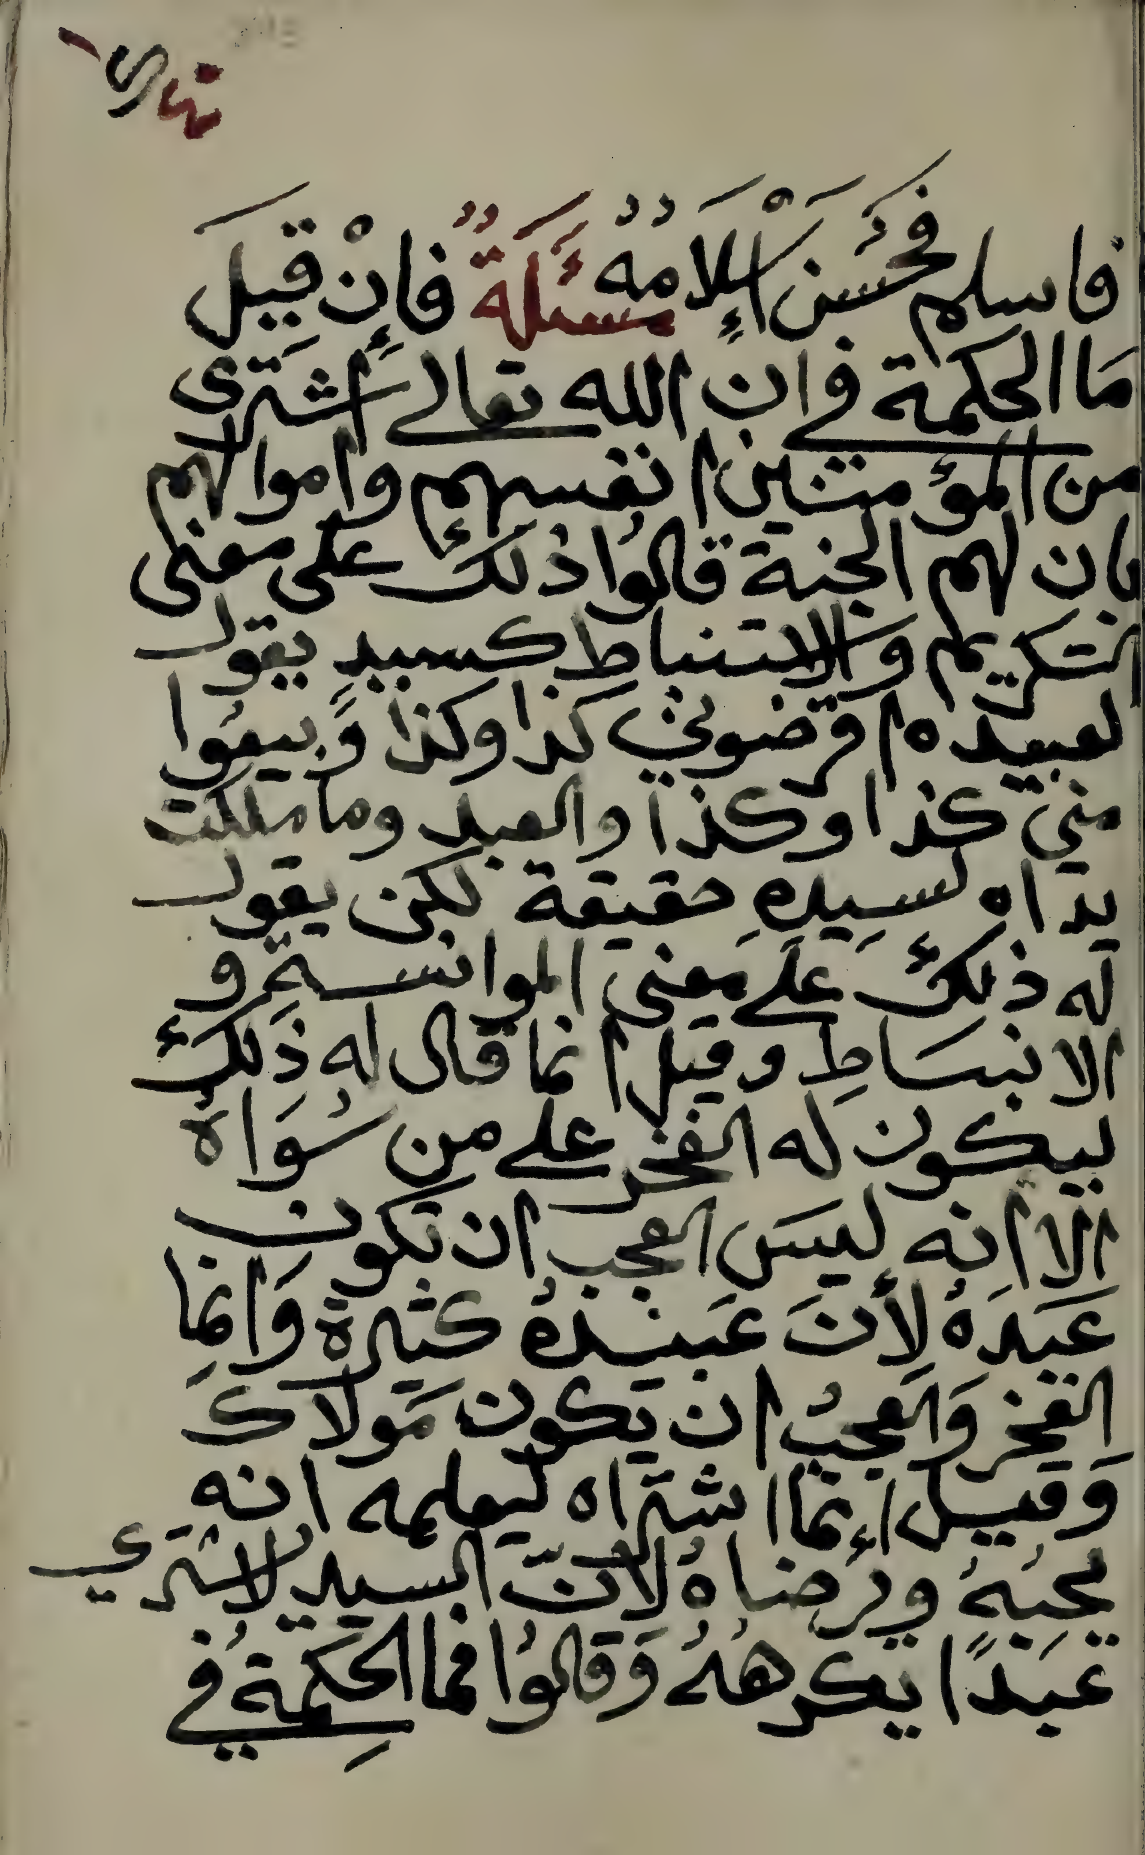 فاسلم فَحُسَنَ إسْلَامُهُ مسئلَةٌ فَإنْ قِيلَ
مَا الحكمة في ان الله تعالى أَشترى
من المؤمنين انفسهم واموالهم
بان لهم الجنة قالوُا ذلك على معنى
التكريم وَالابتنباط كسيدٍ يقول
لعبيده اقرضوني كذا وكذا وَبيعُوا
مني كذا وكذا والعبد وما ملكت
يداه لسيدهِ حقيقة لكن يقول
له ذلك على معنى الموانسة و
الانبساطِ وقيل انما قال له ذَلك
ليكون له الفخر على من سُوَاهُ
الا انه ليسَ العجب ان تكون
عَبَدَهُ لأنَ عَبيدهُ كثيرة وَانمِا
الفخر وَالعجبُ ان يَكون مَولاك
وَقيل إنما اشتراه ليعلمه انه
يحبُهُ ويرضاهُ لانّ السيد لا يشتري
عَبَدًا يكرههُ وَقالوُا فما الحِكمة في